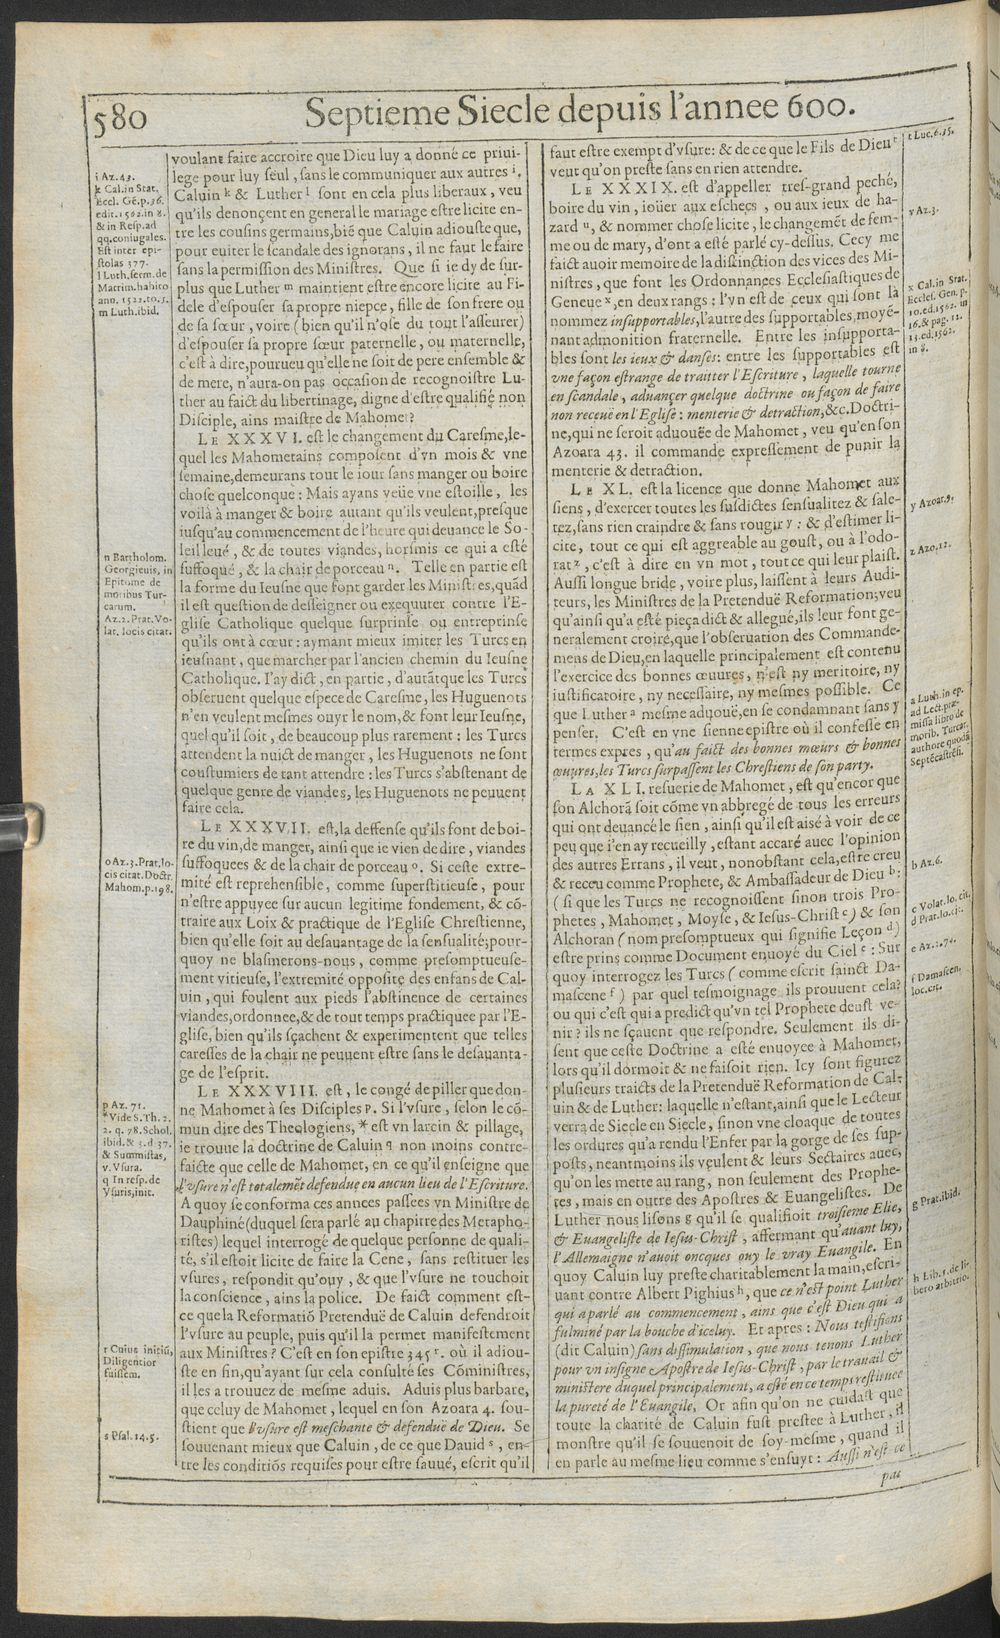 580
Septieme Siecle depuis l'annee 600.
i Az. 43.
k Cal. in Stat.
Eccl. Gē. p. 36.
edit. 1562. in 8.
& in Resp. ad
qq. coniugales.
Est inter epi-
stolas 377.
l Luth. serm. de
Matrim. habito
ann. 1522. to. 5.
m Luth. ibid.
n Bartholom.
Georgieuis, in
Epitome de
moribus Tur-
carum.
Az. 2. Prat. Vo-
lat. locis citat.
o Az. 3. Prat. lo-
cis citat. Doctr.
Mahom. p. 198.
p Az. 71.
*Vide S. Th. 2.
2. q. 78. Schol.
ibid. & 3. d 37.
& Summistas,
v. Vsura.
q In resp. de
Vsuris, init.
r Cuius initiū,
Diligentior
fuissem.
s Psal. 14. 5.
voulant faire accroire que Dieu luy a donné ce priui-
lege pour luy seul, sans le communiquer aux autres i.
Caluin k & Luther l sont en cela plus liberaux, veu
qu'ils denonçent en general le mariage estre licite en-
tre les cousins germains, biē que Caluin adiouste que,
pour euiter le scandale des ignorans, il ne faut le faire
sans la permission des Ministres. Que si ie dy de sur-
plus que Luther m maintient estre encore licite au Fi-
dele d'espouser sa propre niepce, fille de son frere ou
de sa sœur, voire (bien qu'il n'ose du tout l'asseurer)
d'espouser sa propre sœur paternelle, ou maternelle,
c'est à dire, pourueu qu'elle ne soit de pere ensemble &
de mere, n'aura-on pas occasion de recognoistre Lu-
ther au faict du libertinage, digne d'estre qualifié non
Disciple, ains maistre de Mahomet?
LE XXXVI. est le changement du Caresme, le-
quel les Mahometains composent d'vn mois & vne
semaine, demeurans tout le iour sans manger ou boire
chose quelconque: Mais ayans veüe vne estoille, les
voilà à manger & boire autant qu'ils veulent, presque
iusqu'au commencement de l'heure qui deuance le So-
leil leué, & de toutes viandes, horsmis ce qui a esté
suffoqué, & la chair de porceau n. Telle en partie est
la forme du Ieusne que font garder les Ministres, quād
il est question de desseigner ou exequuter contre l'E-
glise Catholique quelque surprinse ou entreprinse
qu'ils ont à cœur: aymant mieux imiter les Turcs en
ieusnant, que marcher par l'ancien chemin du Ieusne
Catholique. I'ay dict, en partie, d'autātque les Turcs
obseruent quelque espece de Caresme, les Huguenots
n'en veulent mesmes ouyr le nom, & font leur Ieusne,
quel qu'il soit, de beaucoup plus rarement: les Turcs
attendent la nuict de manger, les Huguenots ne sont
coustumiers de tant attendre: les Turcs s'abstenant de
quelque genre de viandes, les Huguenots ne peuuent
faire cela.
LE XXXVII. est, la deffense qu'ils font de boi-
re du vin, de manger, ainsi que ie vien de dire, viandes
suffoquees & de la chair de porceau o. Si ceste extre-
mité est reprehensible, comme superstitieuse, pour
n'estre appuyee sur aucun legitime fondement, & cō-
traire aux Loix & practique de l'Eglise Chrestienne,
bien qu'elle soit au desauantage de la sensualité; pour-
quoy ne blasmerons-nous, comme presomptueuse-
ment vitieuse, l'extremité opposite des enfans de Cal-
uin, qui foulent aux pieds l'abstinence de certaines
viandes, ordonnee, & de tout temps practiquee par l'E-
glise, bien qu'ils sçachent & experimentent que telles
caresses de la chair ne peuuent estre sans le desauanta-
ge de l'esprit.
LE XXXVIII. est, le congé de piller que don-
ne Mahomet à ses Disciples p. Si l'vsure, selon le cō-
mun dire des Theologiens, * est vn larcin & pillage,
ie trouue la doctrine de Caluin q non moins contre-
faicte que celle de Mahomet, en ce qu'il enseigne que
l'vsure n'est totalemēt defendue en aucun lieu de l'Escriture.
A quoy se conforma ces annees passees vn Ministre de
Dauphiné (duquel sera parlé au chapitre des Metapho-
ristes) lequel interrogé de quelque personne de quali-
té, s'il estoit licite de faire la Cene, sans restituer les
vsures, respondit qu'ouy, & que l'vsure ne touchoit
la conscience, ains la police. De faict comment est-
ce que la Reformatiō Pretenduë de Caluin defendroit
l'vsure au peuple, puis qu'il la permet manifestement
aux Ministres? C'est en son epistre 345 r. où il adiou-
ste en fin, qu'ayant sur cela consulté ses Cōministres,
il les a trouuez de mesme aduis. Aduis plus barbare,
que celuy de Mahomet, lequel en son Azoara 4. sou-
stient que l'vsure est meschante & defenduë de Dieu. Se
souuenant mieux que Caluin, de ce que Dauid s, en-
tre les conditiōs requises pour estre sauué, escrit qu'il
faut estre exempt d'vsure: & de ce que le Fils de Dieu t
veut qu'on preste sans en rien attendre.
LE XXXIX. est d'appeller tres-grand peché,
boire du vin, ioüer aux eschecs, ou aux ieux de ha-
zard u, & nommer chose licite, le changemēt de fem-
me ou de mary, d'ont a esté parlé cy-dessus. Cecy me
faict auoir memoire de la distinction des vices des Mi-
nistres, que font les Ordonnances Ecclesiastiques de
Geneue x, en deux rangs: l'vn est de ceux qui sont là
nommez insupportables, l'autre des supportables, moyē-
nant admonition fraternelle. Entre les insupporta-
bles sont les ieux & danses: entre les supportables est
vne façon estrange de traitter l'Escriture, laquelle tourne
en scandale, aduançer quelque doctrine ou façon de faire
non receuë en l'Eglise: menterie & detraction, &c. Doctri-
ne, qui ne seroit aduouëe de Mahomet, veu qu'en son
Azoara 43. il commande expressement de punir la
menterie & detraction.
LE XL. est la licence que donne Mahomet aux
siens, d'exercer toutes les susdictes sensualitez & sale-
tez, sans rien craindre & sans rougir y: & d'estimer li-
cite, tout ce qui est aggreable au goust, ou à l'odo-
rat z, c'est à dire en vn mot, tout ce qui leur plaist.
Aussi longue bride, voire plus, laissent à leurs Audi-
teurs, les Ministres de la Pretenduë Reformation; veu
qu'ainsi qu'a esté pieça dict & allegué, ils leur font ge-
neralement croire, que l'obseruation des Commande-
mens de Dieu, en laquelle principalement est contenu
l'exercice des bonnes œuures, n'est ny meritoire, ny
iustificatoire, ny necessaire, ny mesmes possible. Ce
que Luther a mesme aduouë, en se condamnant sans y
penser. C'est en vne sienne epistre où il confesse en
termes expres, qu'au faict des bonnes mœurs & bonnes
œuures, les Turcs surpassent les Chrestiens de son party.
LA XLI. resuerie de Mahomet, est qu'encor que
son Alchorā soit cōme vn abbregé de tous les erreurs
qui ont deuancé le sien, ainsi qu'il est aisé à voir de ce
peu que i'en ay recueilly, estant accaré auec l'opinion
des autres Errans, il veut, nonobstant cela, estre creu
& receu comme Prophete, & Ambassadeur de Dieu b:
(si que les Turcs ne recognoissent sinon trois Pro-
phetes, Mahomet, Moyse, & Iesus-Christ c) & son
Alchoran (nom presomptueux qui signifie Leçon d)
estre prins comme Document enuoyé du Ciel e: Sur
quoy interrogez les Turcs (comme escrit sainct Da-
mascene f) par quel tesmoignage ils prouuent cela?
ou qui c'est qui a predict qu'vn tel Prophete deust ve-
nir? ils ne sçauent que respondre. Seulement ils di-
sent que ceste Doctrine a esté enuoyee à Mahomet,
lors qu'il dormoit & ne faisoit rien. Icy sont figurez
plusieurs traicts de la Pretenduë Reformation de Cal-
uin & de Luther: laquelle n'estant, ainsi que le Lecteur
verra de Siecle en Siecle, sinon vne cloaque de toutes
les ordures qu'a rendu l'Enfer par la gorge de ses sup-
posts, neantmoins ils veulent & leurs Sectaires auec,
qu'on les mette au rang, non seulement des Prophe-
tes, mais en outre des Apostres & Euangelistes. De
Luther nous lisons g qu'il se qualifioit troisieme Elie,
& Euangeliste de Iesus-Christ, affermant qu'auant luy,
l'Allemaigne n'auoit oncques ouy le vray Euangile. En
quoy Caluin luy preste charitablement la main, escri-
uant contre Albert Pighius h, que ce n'est point Luther
qui a parlé au commencement, ains que c'est Dieu qui a
fulminé par la bouche d'iceluy. Et apres: Nous testifions
(dit Caluin) sans dissimulation, que nous tenons Luther
pour vn insigne Apostre de Iesus-Christ, par le trauail &
ministere duquel principalement, a esté en ce temps restituee
la pureté de l'Euangile, Or afin qu'on ne cuidast que
toute la charité de Caluin fust prestee à Luther, il
monstre qu'il se souuenoit de soy-mesme, quand il
en parle au mesme lieu comme s'ensuyt: Aussi n'est-ce
pas
t Luc. 6. 35.
v Az. 3.
x Cal. in Stat.
Eccles. Gen. p.
10. ed. 1562. in
16. & pag. 12.
13. ed. 1562.
in 8.
y Azoar. 9.
z Azo. 12.
a Luth. in ep.
ad Lect. præ-
missa libro de
morib. Turcar.
authore quodā
Septēcastrēsi.
b Az. 6.
c Volat. lo. cit.
d Prat. lo. cit.
e Az. 2. 74.
f Damascen.
loc. cit.
g Prat. ibid.
h Lib. 1. de li-
bero arbitrio.